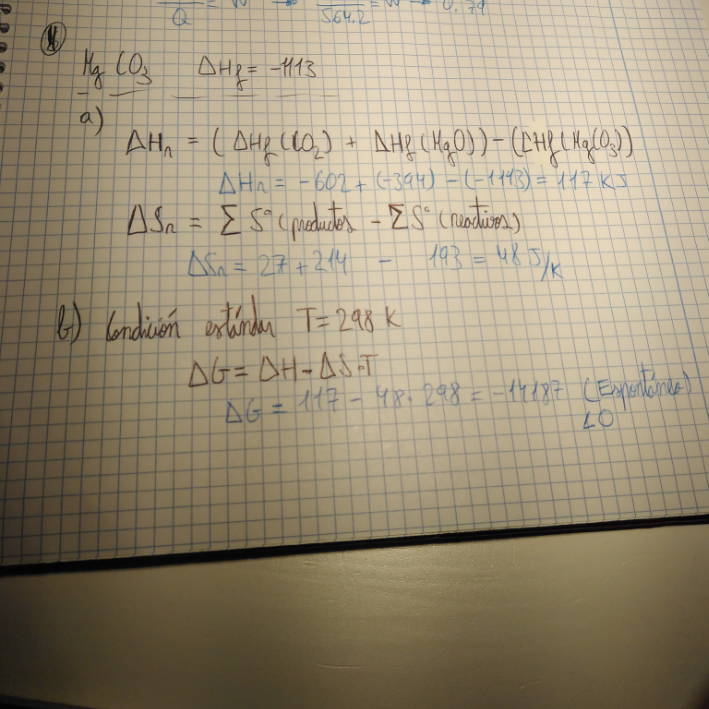 Q 564.2 = W → 0.79
Mg CO3 ΔHf = -1113
a)
ΔHr = (ΔHf(CO2) + ΔHf(MgO)) - (ΔHf(MgCO3))
ΔHr = -602 + (-394) - (-1113) = 117 KJ
ΔSr = Σ S°(productos - Σ S°(reactivos)
ΔSr = 27 + 214 - 193 = 48 J/K
b) Condición estándar T = 298 K
ΔG = ΔH - ΔS·T
ΔG = 117 - 48 · 298 = -14187 (Espontáneo)
<0